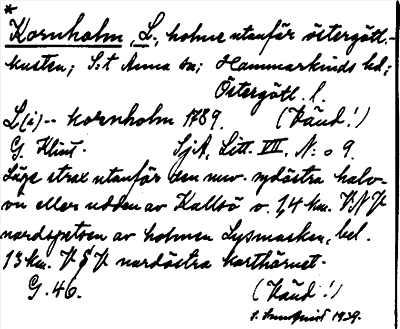 *
Kornholm, L., holme utanför östergötl.-
kusten; S:t Anna sn; Hammarkinds hd;
Östergötl. l.
L(i)-- kornholm 1789. (Känd!)
G. Klint. SjA, Litt. VII. N:o 9.
Läge strax utanför den nuv. sydöstra halv-
ön eller udden av Kallsö o. 1,4 km. VNV
nordspetsen av holmen Lysmasken, bel.
13 km. V§V nordöstra korthörnet.
G. 46. (Känd!)
1929.